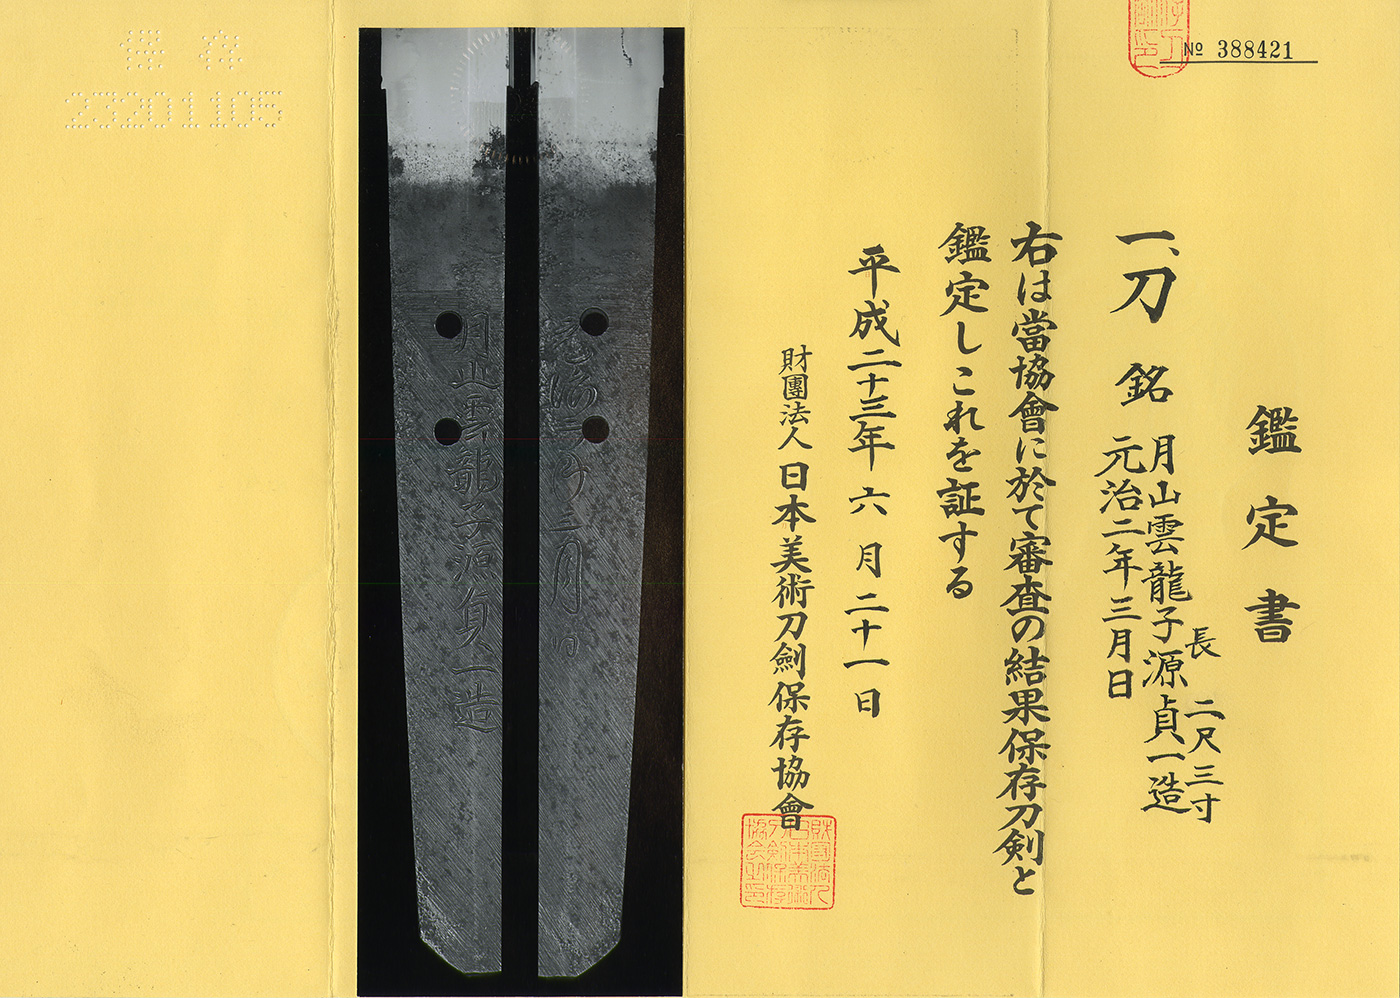 № 388421
鑑定書
一、刀 銘 月山雲龍子源貞一造
元治二年三月日
長 二尺三寸
右は當協會に於て審査の結果保存刀剣と
鑑定しこれを証する
平成二十三年六月二十一日
財團法人日本美術刀劍保存協會
月山雲龍子源貞一造
元治二年三月日
保存
23201105